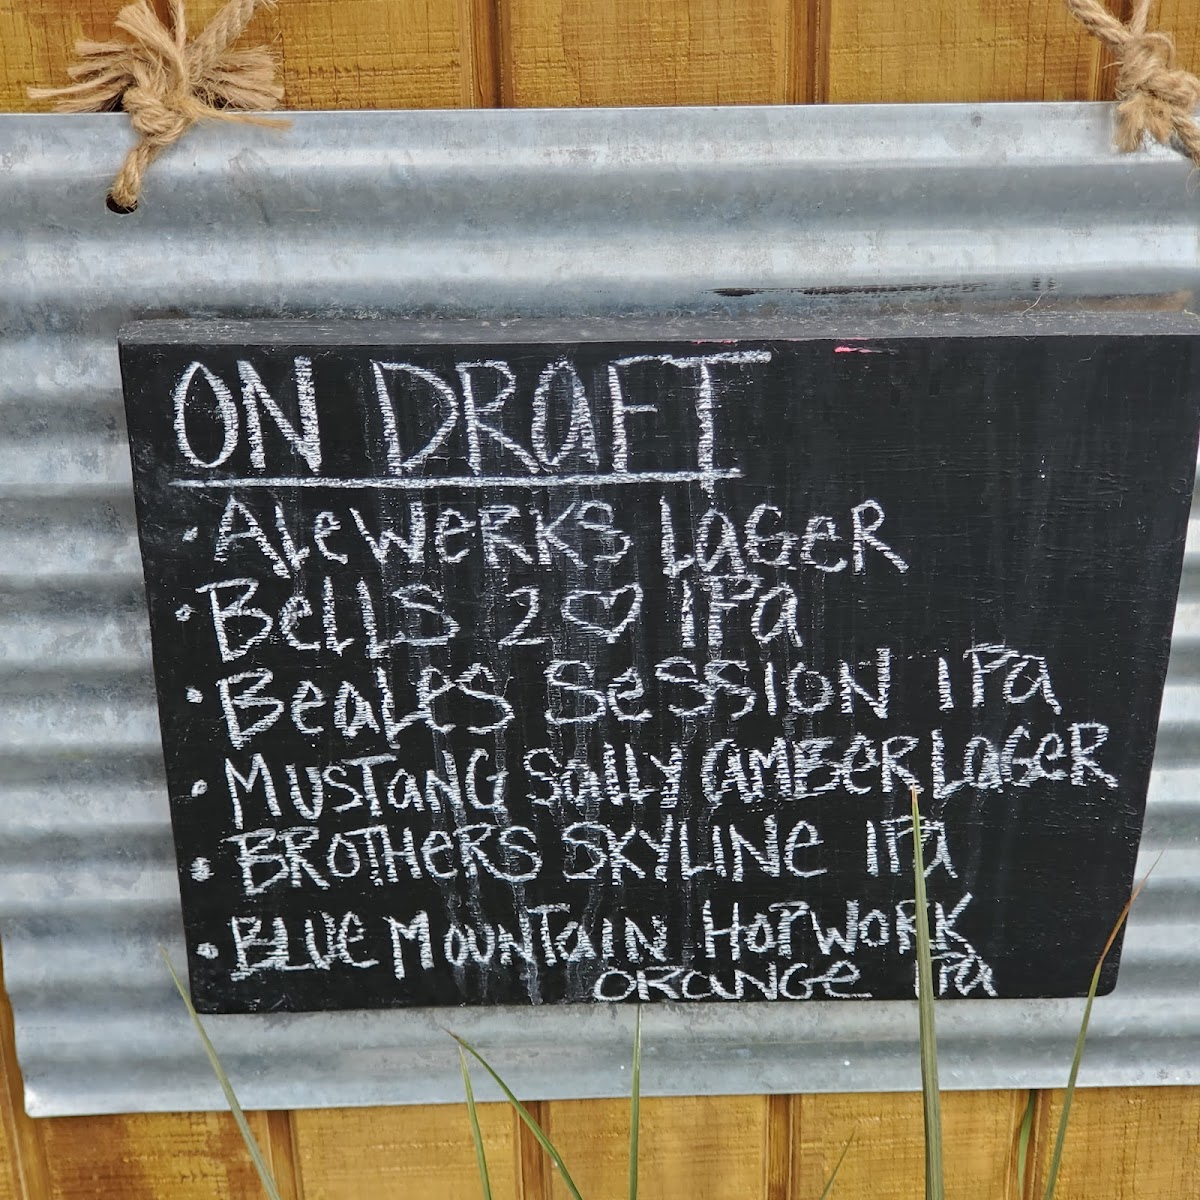 ON DRAFT
• ALeWeRKS LaGeR
• BeLLS 2 ♡ IPa
• BeaLes SeSSION IPa
• MUSTaNG SaLLY aMBeR LaGeR
• BROTHeRS SKYLINe IPa
• BLUe MOUNTaIN HOPWORK
ORaNGe IPa